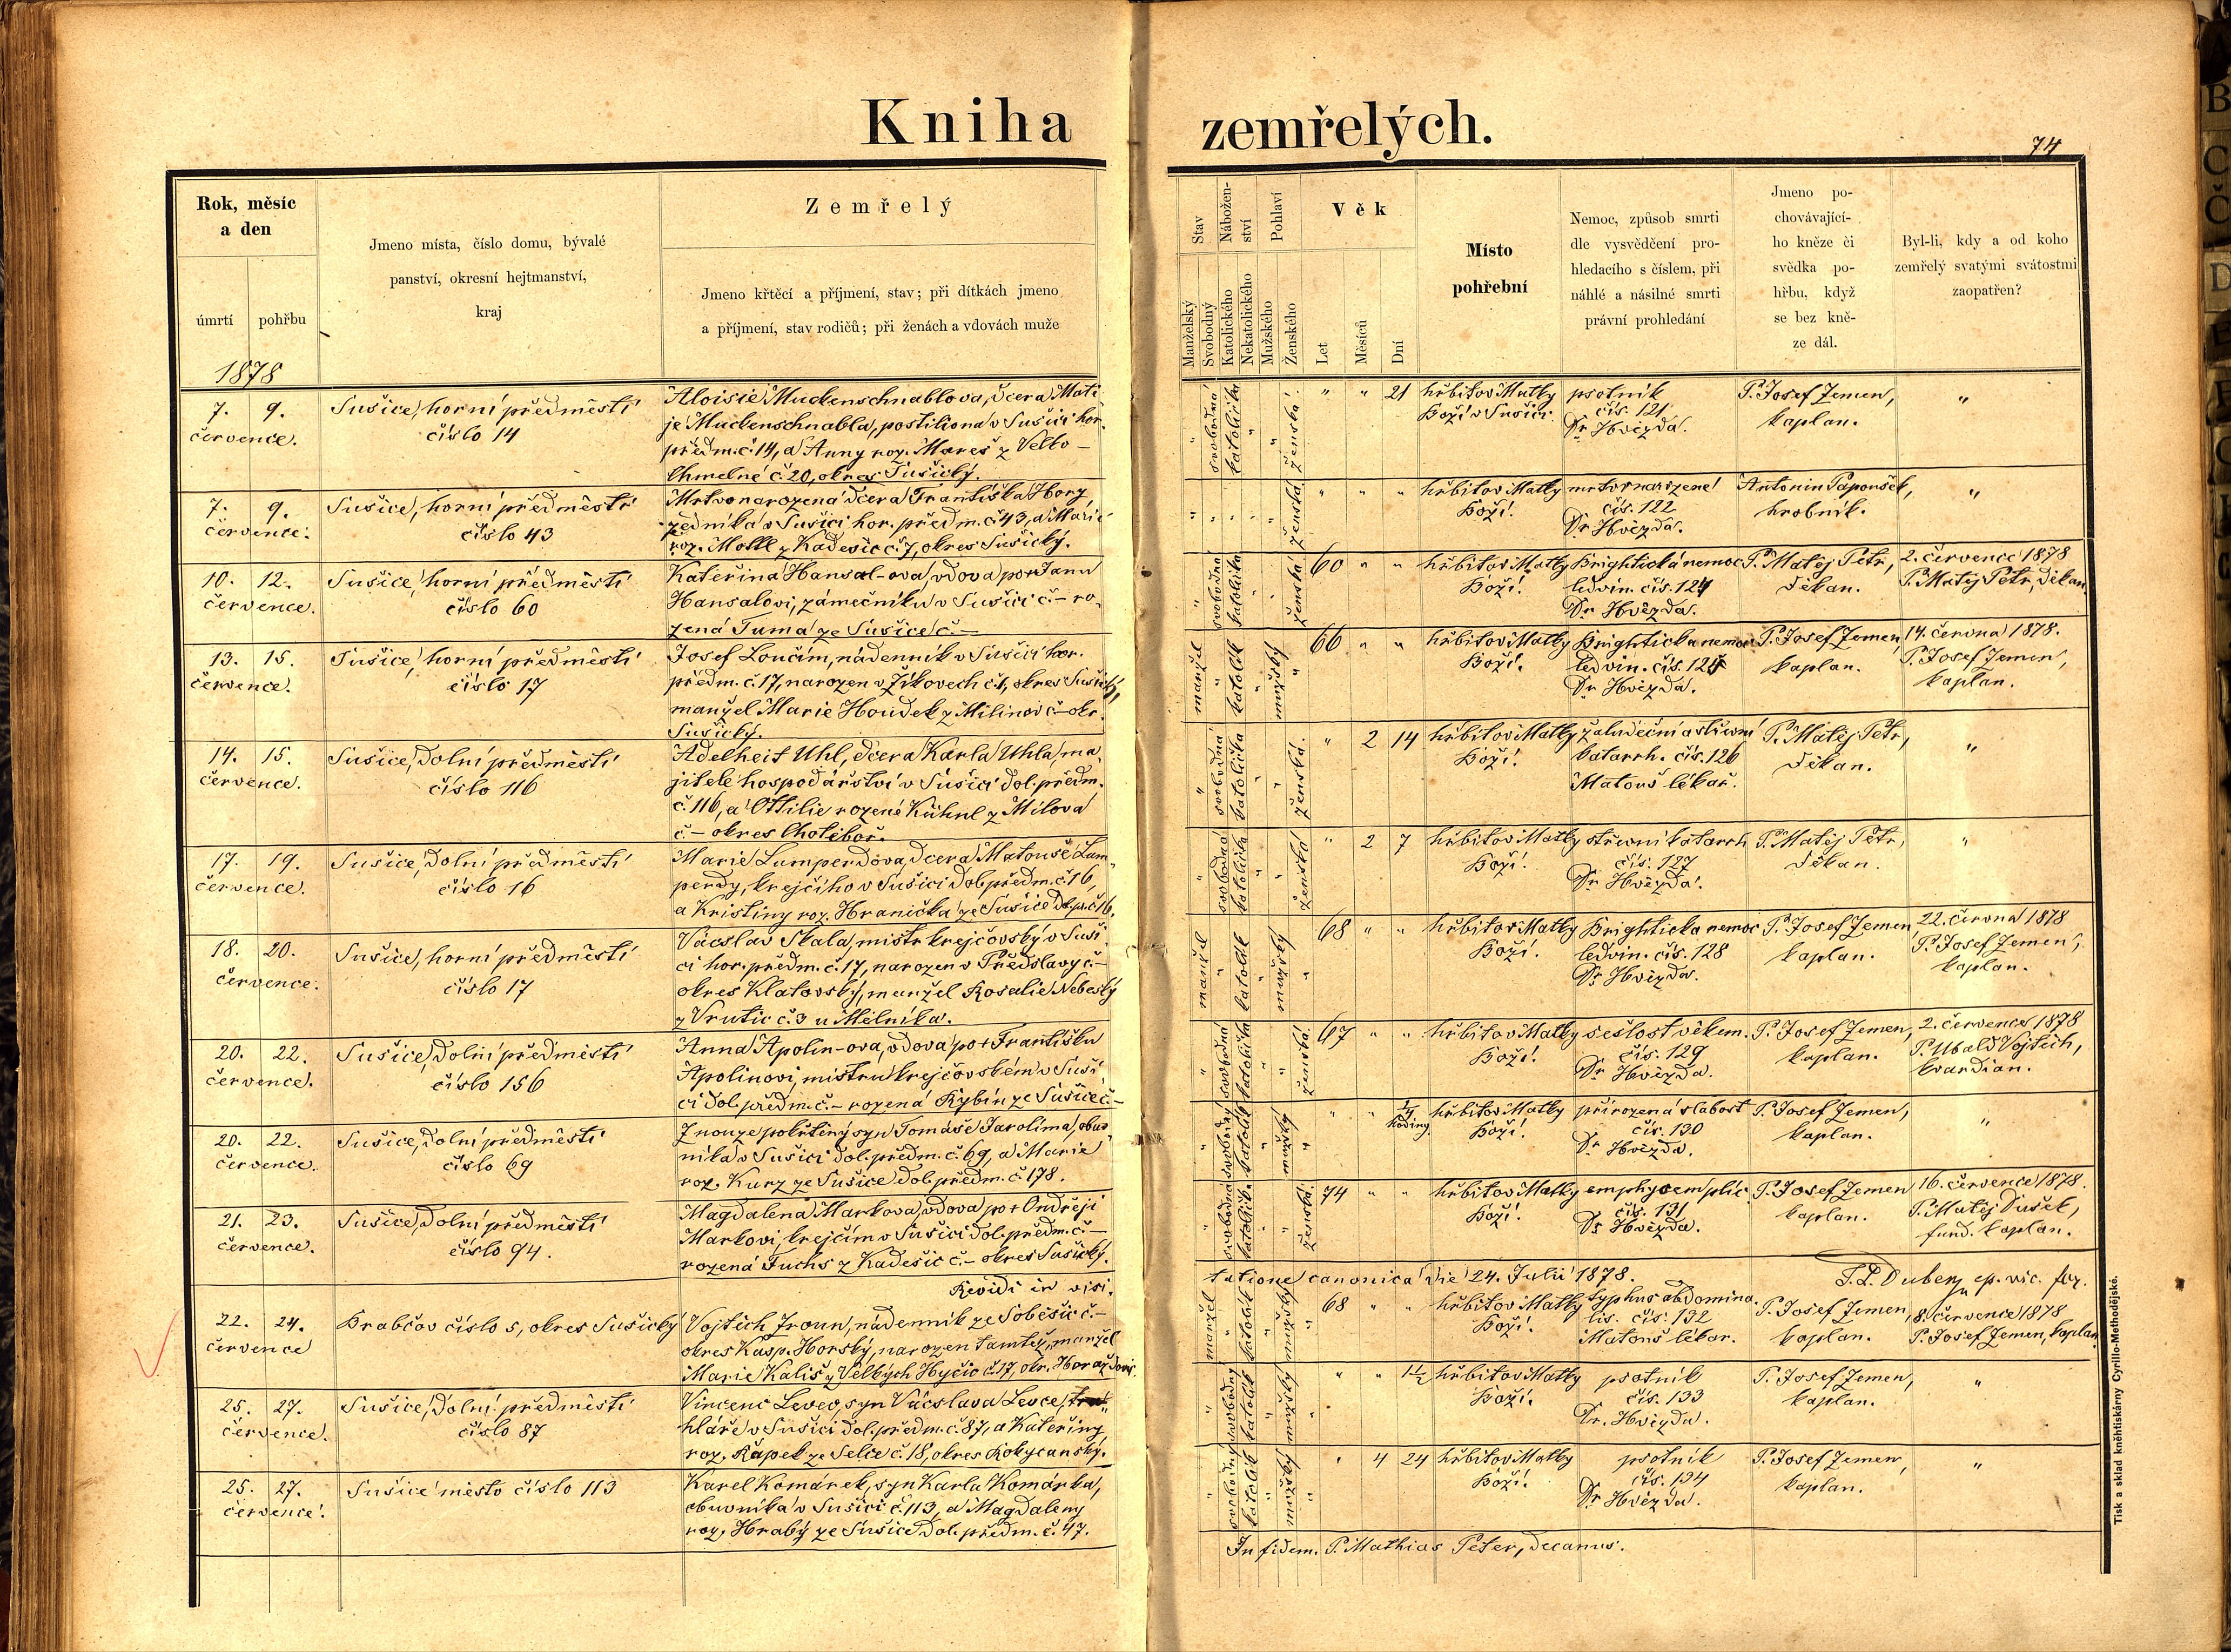 Kniha zemřelých.
74
Rok, měsíc
a den
úmrtí
pohřbu
1878
Jmeno místa, číslo domu, bývalé
panství, okresní hejtmanství,
kraj
Zemřelý
Jmeno křtěcí a příjmení, stav; při dítkách jmeno
a příjmení, stav rodičů; při ženách a vdovách muže
Stav
Nábožen-
ství
Pohlaví
Manželský
Svobodný
Katolického
Nekatolického
Mužského
Ženského
Věk
Let
Měsíců
Dní
Místo
pohřební
Nemoc, způsob smrti
dle vysvědčení pro-
hledacího s číslem, při
náhlé a násilné smrti
právní prohledání
Jmeno po-
chovávající-
ho kněze či
svědka po-
hřbu, když
se bez kně-
ze dál.
Byl-li, kdy a od koho
zemřelý svatými svátostmi
zaopatřen?
7. 9.
července.
Sušice, horní předměstí
číslo 14
Aloisie Muckenschnablova, dcera Mati-
je Muckenschnabla, postiliona v Sušici hor.
předm. č. 14, a Anny roz. Mareš z Velko-
Chmelné č. 20, okres Sušický.
" svobodná katolička " " ženská
" " 21
hřbitov Matky
Boží v Sušici.
psotník
čís. 121
Dr. Hvězda.
P. Josef Jemen,
kaplan.
"
7. 9.
července.
Sušice, horní předměstí
číslo 43
Mrtvonarozená dcera Františka Hory
zedníka v Sušici hor. předm. č. 43, a Marie
roz. Moll z Kadešic č. 7, okres Sušický.
" " " " " ženská
" " "
hřbitov Matky
Boží.
mrtvě narozené
čís. 122
Dr. Hvězda.
Antonin Papoušek,
hrobník.
"
10. 12.
července.
Sušice, horní předměstí
číslo 60
Kateřina Hansal-ova, vdova po + Janu
Hansalovi, zámečníku v Sušici č. – ro-
zená Tuma ze Sušice č. –
" svobodná katolička " " ženská
60 " "
hřbitov Matky
Boží.
Brightická nemoc
ledvin. čís. 124
Dr. Hvězda.
P. Matěj Petr,
děkan.
2. července 1878
P. Matěj Petr, děkan
13. 15.
července.
Sušice, horní předměstí
číslo 17
Josef Loučím, nádenník v Sušici hor.
předm. č. 17, narozen v Žikovech č. 1, okres Sušický,
manžel Marie Houdek z Milinov č. – okr.
Sušický.
manžel " katolík " mužský "
66 " "
hřbitov Matky
Boží.
Brightická nemoc
ledvin. čís. 125
Dr. Hvězda.
P. Josef Jemen,
kaplan.
14. června 1878.
P. Josef Jemen,
kaplan.
14. 15.
července.
Sušice, dolní předměstí
číslo 116
Adelheit Uhl, dcera Karla Uhla, ma-
jitele hospodářství v Sušici dol. předm.
č. 116, a Ottilie rozené Kühnl z Milova
č. – okres Chotěboř.
" svobodná katolička " " ženská
" 2 14
hřbitov Matky
Boží.
žaludeční a střevní
katarrh. čís. 126
Matouš lékař.
P. Matěj Petr,
děkan.
"
17. 19.
července.
Sušice, dolní předměstí
číslo 16
Marie Lumperdova, dcera Matouše Lum-
perdy, krejčího v Sušici dol. předm. č. 16,
a Kristiny roz. Hranička ze Sušice dol. př. č. 16.
" svobodná katolička " " ženská
" 2 7
hřbitov Matky
Boží.
střevní katarrh
čís. 127
Dr. Hvězda.
P. Matěj Petr,
děkan.
"
18. 20.
července.
Sušice, horní předměstí
číslo 17
Vácslav Skala, mistr krejčovský v Suši-
ci hor. předm. č. 17, narozen v Předslavy č. –
okres Klatovský, manžel Rosalie Nebeský
z Vrutic č. 3 u Mělníka.
manžel " katolík " mužský "
68 " "
hřbitov Matky
Boží.
Brightická nemoc
ledvin. čís. 128
Dr. Hvězda.
P. Josef Jemen,
kaplan.
22. června 1878
P. Josef Jemen,
kaplan.
20. 22.
července.
Sušice, dolní předměstí
číslo 156
Anna Apolin-ova, vdova po + Františku
Apolinovi, mistru krejčovském v Suši-
ci dol. předm. č. – rozená Rybín ze Sušice č. –
" svobodna katolička " " ženská
67 " "
hřbitov Matky
Boží.
sešlost věkem.
čís. 129
Dr. Hvězda.
P. Josef Jemen,
kaplan.
2. července 1878
P. Ubald Vojtěch,
kvardian.
20. 22.
července.
Sušice, dolní předměstí
číslo 69
Z nouze pokřtěný syn Tomáše Jarolíma, obuv-
níka v Sušici dol. předm. č. 69, a Marie
roz. Kurz ze Sušice dol. předm. č. 178.
" svobodný katolík " mužský "
" " 1/4
hodiny
hřbitov Matky
Boží.
přirozená slabost
čís. 130
Dr. Hvězda.
P. Josef Jemen,
kaplan.
"
21. 23.
července.
Sušice, dolní předměstí
číslo 94.
Magdalena Markova, vdova po + Ondřeji
Markovi, krejčím v Sušici dol. předm. č. –
rozená Fuchs z Kadešic č. – okres Sušický.
" svobodna katolička " " ženská
74 " "
hřbitov Matky
Boží.
emphysem plic
čís. 131
Dr. Hvězda.
P. Josef Jemen
kaplan.
16. července 1878.
P. Matěj Dušek,
fund. kaplan.
Revidi in visi-
tatione canonica die 24. Julii 1878.
ep. vic. for.
22. 24.
července
Brabčov číslo 5, okres Sušický
Vojtěch Troun, nádenník ze Soběšic č. –
okres Kasp. Horský, narozen tamtéž, manžel
Marie Kališ z Velkých Hyčic č. 17, okr. Horažďovic.
manžel " katolík " mužský "
68 " "
hřbitov Matky
Boží.
typhus abdomina-
lis. čís. 132
Matouš lékař.
P. Josef Jemen,
kaplan.
8. července 1878
P. Josef Jemen, kaplan
25. 27.
července.
Sušice, dolní předměstí
číslo 87
Vincenc Levec, syn Vácslava Levce, tru-
hláře v Sušici dol. předm. č. 87, a Kateřiny
roz. Řápek ze Selce č. 18, okres Rokycanský.
" svobodný katolík " mužský "
" " 1 1/2
hřbitov Matky
Boží.
psotník
čís. 133
Dr. Hvězda.
P. Josef Jemen,
kaplan.
"
25. 27.
července.
Sušice město číslo 113
Karel Komárek, syn Karla Komárka,
obuvníka v Sušici č. 113, a Magdaleny
roz. Hrabý ze Sušice dol. předm. č. 47.
" svobodný katolík " mužský "
" 4 24
hřbitov Matky
Boží.
psotník
čís. 134
Dr. Hvězda.
P. Josef Jemen,
kaplan.
"
In fidem. P. Mathias Peter, decanus.
Tisk a sklad kněhtiskárny Cyrillo-Methodějské.